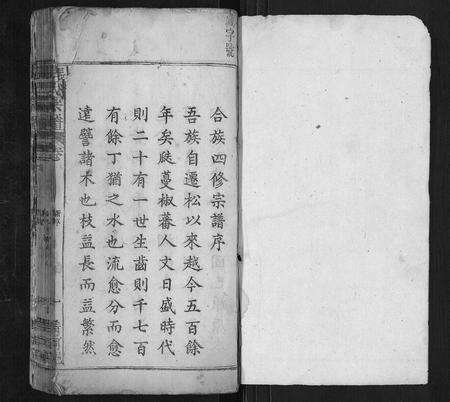 合族四修宗譜序
吾族自遷松以來越今五百餘
年矣瓞蔓椒蕃人文日盛時代
則二十有一世生齒則千七百
有餘丁猶之水也流愈分而愈
遠譬諸木也枝益長而益繁然
字號